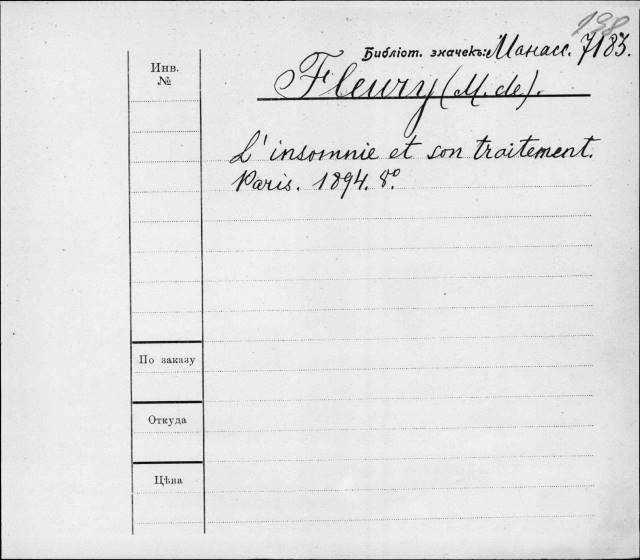 198
Библіот. значекъ: Манасс. 7183.
Инв.
№
Fleury (M. de).
L'insomnie et son traitement.
Paris. 1894. 8º.
По заказу
Откуда
Цѣна